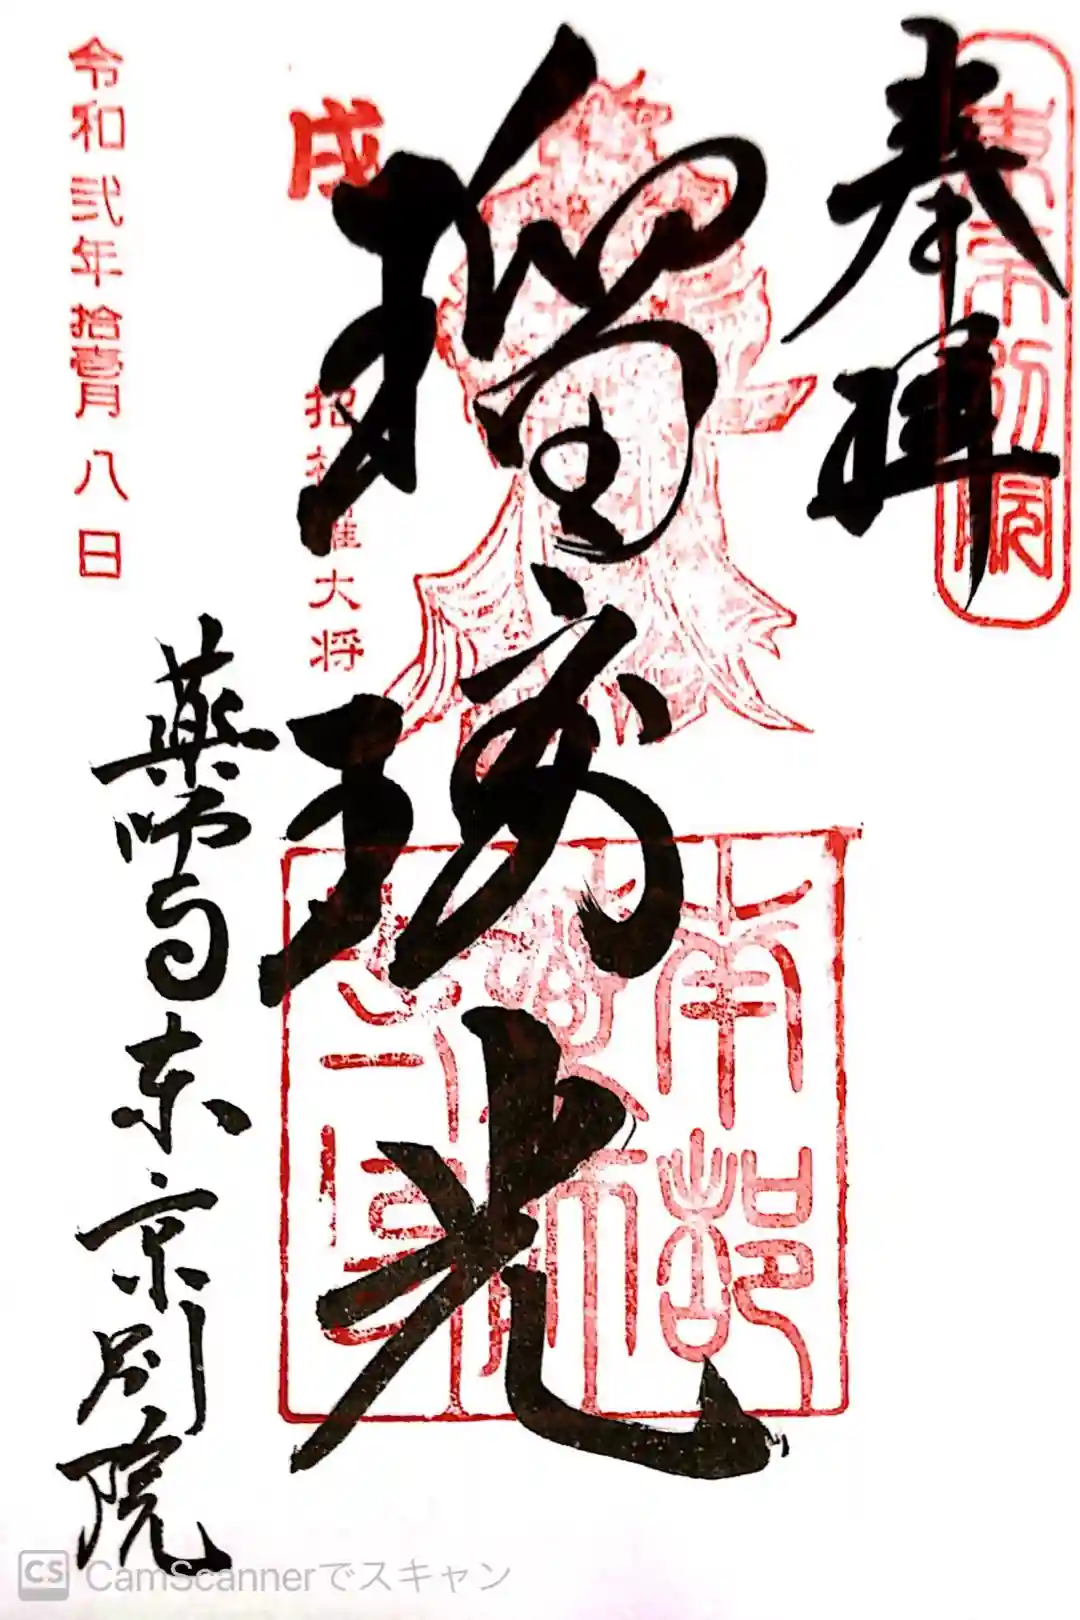 奉拝
東京別院
瑠璃光
戌
招杜羅大将
南都
薬師
令和弐年拾壹月八日
薬師寺東京別院
CS CamScannerでスキャン